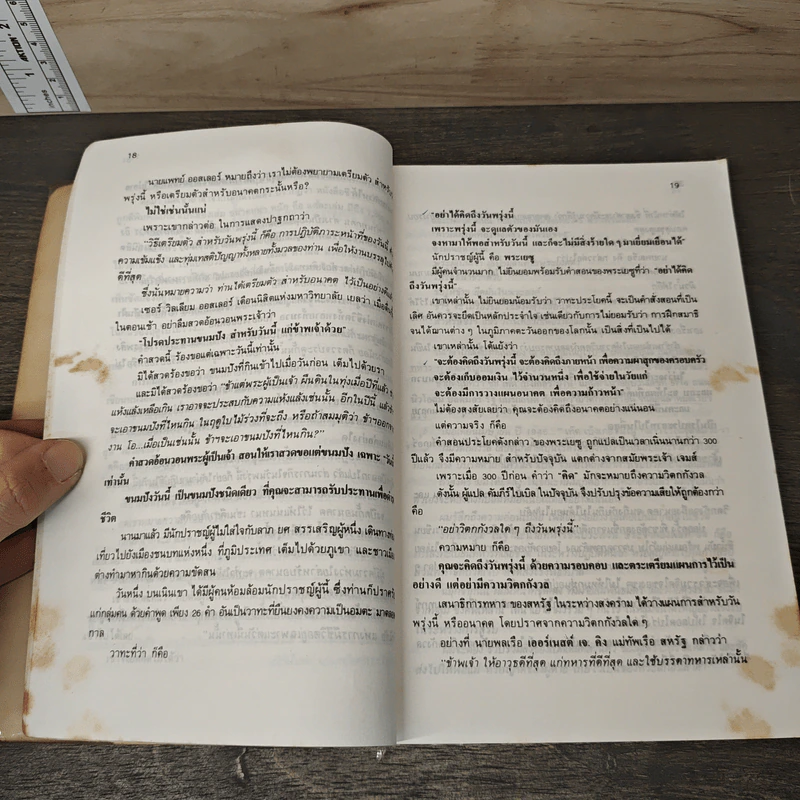 INCHES
1
2
ACTION
5
6
18
นายแพทย์ ออสเลอร์ หมายถึงว่า เราไม่ต้องพยายามเตรียมตัว สำหรับ
พรุ่งนี้ หรือเตรียมตัวสำหรับอนาคตกระนั้นหรือ?
ไม่ใช่เช่นนั้นแน่
เพราะเขากล่าวต่อ ในการแสดงปาฐกถาว่า
"วิธีเตรียมตัว สำหรับวันพรุ่งนี้ ก็คือ การปฏิบัติภาระหน้าที่ของวันนี้
ความเข้มแข็ง และทุ่มเทสติปัญญาทั้งหลายทั้งมวลของท่าน เพื่อให้งานบรรลุ
ดีที่สุด
ซึ่งนั่นหมายความว่า ท่านได้เตรียมตัว สำหรับอนาคต ไว้เป็นอย่างดี
เซอร์ วิลเลียม ออสเลอร์ เตือนนิสิตแห่งมหาวิทยาลัย เยลว่า เมื่อ
ในตอนเช้า อย่าลืมสวดอ้อนวอนพระเจ้าว่า
"โปรดประทานขนมปัง สำหรับวันนี้ แก่ข้าพเจ้าด้วย"
คำสวดนี้ ร้องขอแต่เฉพาะวันนี้เท่านั้น
มิได้สวดร้องขอว่า ขนมปังที่กินเข้าไปเมื่อวันก่อน เต็มไปด้วยรา
และมิได้สวดร้องขอว่า "ข้าแต่พระผู้เป็นเจ้า ผืนดินในทุ่งเมื่อปีที่แล้ว
แห้งแล้งเหลือเกิน เราอาจจะประสบกับความแห้งแล้งเช่นนั้น อีกในปีนี้ แล้ว
จะเอาขนมปังที่ไหนกิน ในฤดูใบไม้ร่วงที่จะถึง หรือถ้าสมมุติว่า ข้าฯออก
งาน โอ...เมื่อเป็นเช่นนั้น ข้าฯจะเอาขนมปังที่ไหนกิน?"
คำสวดอ้อนวอนพระผู้เป็นเจ้า สอนให้เราสวดขอแต่ขนมปัง เฉพาะ "วันนี้
เท่านั้น
ขนมปังวันนี้ เป็นขนมปังชนิดเดียว ที่คุณจะสามารถรับประทานเพื่อ
ชีวิต
นานมาแล้ว มีนักปราชญ์ผู้ไม่ใส่ใจกับลาภ ยศ สรรเสริญผู้หนึ่ง เดินทาง
เที่ยวไปยังเมืองชนบทแห่งหนึ่ง ที่ภูมิประเทศ เต็มไปด้วยภูเขา และชาวเมือง
ต่างทำมาหากินด้วยความขัดสน
วันหนึ่ง บนเนินเขา ได้มีผู้คนห้อมล้อมนักปราชญ์ผู้นี้ ซึ่งท่านก็ปราศรัย
แก่กลุ่มคน ด้วยคำพูด เพียง 26 คำ อันเป็นวาทะที่ยืนยงคงความเป็นอมตะ มาตลอด
กาล
วาทะที่ว่า ก็คือ
19
"อย่าได้คิดถึงวันพรุ่งนี้
เพราะพรุ่งนี้ จะดูแลตัวของมันเอง
จงหามาให้พอสำหรับวันนี้ และก็จะไม่มีสิ่งร้ายใด ๆ มาเยี่ยมเยือนได้"
นักปราชญ์ผู้นี้ คือ พระเยซู
มีผู้คนจำนวนมาก ไม่ยินยอมพร้อมรับคำสอนของพระเยซูที่ว่า "อย่าได้คิด
ถึงวันพรุ่งนี้"
เขาเหล่านั้น ไม่ยินยอมน้อมรับว่า วาทะประโยคนี้ จะเป็นคำสั่งสอนที่เป็น
เลิศ อันควรจะยึดเป็นหลักประจำใจ เช่นเดียวกับการไม่ยอมรับว่า การฝึกสมาธิ
จนได้ฌานต่าง ๆ ในภูมิภาคตะวันออกของโลกนั้น เป็นสิ่งที่เป็นไปได้
เขาเหล่านั้น โต้แย้งว่า
"จะต้องคิดถึงวันพรุ่งนี้ จะต้องคิดถึงภายหน้า เพื่อความผาสุกของครอบครัว
จะต้องเก็บออมเงิน ไว้จำนวนหนึ่ง เพื่อใช้จ่ายในวัยแก่
จะต้องมีการวางแผนอนาคต เพื่อความก้าวหน้า"
ไม่ต้องสงสัยเลยว่า คุณจะต้องคิดถึงอนาคตอย่างแน่นอน
แต่ความจริง ก็คือ
คำสอนประโยคดังกล่าว ของพระเยซู ถูกแปลเป็นเวลาเนิ่นนานกว่า 300
ปีแล้ว จึงมีความหมาย สำหรับปัจจุบัน แตกต่างจากสมัยพระเจ้า เจมส์
เพราะเมื่อ 300 ปีก่อน คำว่า "คิด" มักจะหมายถึงความวิตกกังวล
ดังนั้น ผู้แปล คัมภีร์ไบเบิล ในปัจจุบัน จึงปรับปรุงข้อความเสียให้ถูกต้องกว่า
คือ
"อย่าวิตกกังวลใด ๆ ถึงวันพรุ่งนี้"
ความหมาย ก็คือ
คุณจะคิดถึงวันพรุ่งนี้ ด้วยความรอบคอบ และตระเตรียมแผนการไว้เป็น
อย่างดี แต่อย่ามีความวิตกกังวล
เสนาธิการทหาร ของสหรัฐ ในระหว่างสงคราม ได้วางแผนการสำหรับวัน
พรุ่งนี้ หรืออนาคต โดยปราศจากความวิตกกังวลใด ๆ
อย่างที่ นายพลเรือ เออร์เนสต์ เจ. คิง แม่ทัพเรือ สหรัฐ กล่าวว่า
"ข้าพเจ้า ให้อาวุธดีที่สุด แก่ทหารที่ดีที่สุด และใช้บรรดาทหารเหล่านั้น